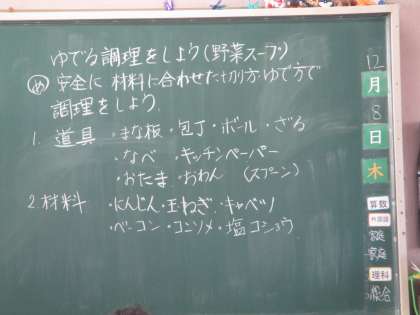 ゆでる調理をしよう(野菜スープ)
め 安全に材料に合わせた切り方ゆで方で
調理をしよう。
1. 道具 ・まな板・包丁・ボール・ざる
・なべ ・キッチンペーパー
・おたま・おわん (スプーン)
2. 材料 ・にんじん・玉ねぎ・キャベツ
・ベーコン・コンソメ・塩コショウ
12
月
8
日
木
算数
外国語
家庭
家庭
理科
総合